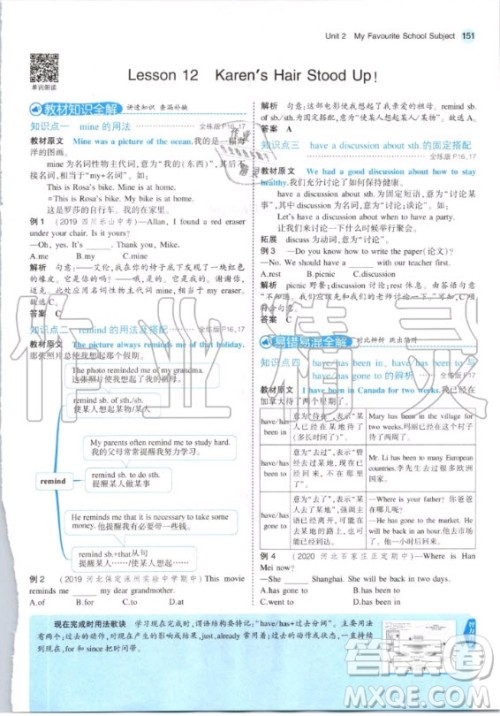 Unit 2 My Favourite School Subject 151
单词朗读
Lesson 12 Karen's Hair Stood Up!
教材知识全解 讲透知识 查漏补缺
知识点一 mine 的用法 全练版P16,17
教材原文 Mine was a picture of the ocean. 我的是一幅海
洋的图画。
mine 为名词性物主代词,意为“我的(东西)”,其
相当于“my+名词”。如:
This is Rosa's bike. Mine is at home.
=This is Rosa's bike. My bike is at home.
这是罗莎的自行车。我的在家里。
例 1 (2019 四川乐山中考)—Allan, I found a red eraser
under your chair. Is it yours?
—Oh, yes. It's ____. Thank you.
A.me B.my C.mine
解析 句意:——艾伦,我在你的椅子底下发现了一块红色
的橡皮。它是你的吗?——哦,是的。它是我的。谢谢
你。此处应用名词性物主代词 mine,相当于 my eraser。
答案 C
知识点二 remind 的用法及搭配 全练版P16,17
教材原文 The picture always reminds me of that holiday.
那张照片总是使我想起那个假期。
The photo reminded me of my grandma.
这张照片使我想起了我的奶奶。
remind sb. of sb./sth.
使某人想起某人/某物
My parents often remind me to study hard.
我的父母常常提醒我努力学习。
remind
remind sb. to do sth.
提醒某人做某事
He reminded me that it is necessary to make
some money. 他提醒我有必要挣一些钱。
remind sb.+that从句
提醒某人……/使某人想起……
例 2 (2019 河北保定淮河实验中学期中) This movie
reminds me ____ my dear grandmother.
A.of B.for C.to D.from
解析 句意:这部电影使我想起了我亲爱的奶奶。remind sb.
of sb./sth. 为固定搭配,意为“使某人想起某人/某物”。
答案 A
知识点三 have a discussion about sth. 的固定搭配
全练版P16,17
教材原文 We have a discussion about how to stay
healthy. 我们充分讨论了如何保持健康。
have a discussion about sth. 为固定短语,意为“讨论某
事”,其中 discussion 为名词,意为“讨论”。如:
Let's have a discussion about when to have a party.
让我们讨论一下什么时候举行聚会。
拓展 discuss 为动词,意为“讨论”。
例 3 —Do you know how to write the paper(论文)?
—No. We should have a ____ with our teacher first.
A.rest B.picnic C.discussion
解析 picnic 野餐;discussion 讨论;rest 休息。由答语句意
“不知道。我们应该首先和我们的老师讨论一下。”可
知选 C。
答案 C
易错易混全解 对比辨析 跳出陷阱
知识点四 have/has been in、have/has been to 与
have/has gone to 的辨析 全练版P16,17
教材原文 I have been in Canada for two weeks. 我已经在
加拿大待了两个星期了。
have/has been in 意为“待在”,表示“某人已经在某地待了(多长时间了)” Mary has been in the village for two weeks. 玛丽已经在这个村庄里待了两个星期了。
have/has been to 意为“去过”,表示“某人曾经去过某地,现在已经不在某地了” Mr. Li has been to many European countries. 李先生去过很多欧洲国家。
have/has gone to 意为“去了”,表示“某人已经去了某地”,强调主语已经离开,可能在去某地的路上,也可能在某地 —Where is your father? —He has gone to the market. He'll be back soon. ——你父亲在哪里?——他去市场了。他一会儿回来。
例 4 (2020 河北石家庄正定期中)—Where is Han
Mei now?
—She ____ Shanghai. She will be back in two days.
A.has gone to B.has been to
C.has been in D.have gone to
现在完成时用法歌诀 学习现在完成时,谓语结构委特记:“have/has+过去分词”。现在完成时用法有二
种:过去的动作,对现在产生的影响或结果,最关键;过去开始的动作或状态,一直持续
到现在,since 或 for 把时间带。
作业精灵
答案圈
MXQE.COM